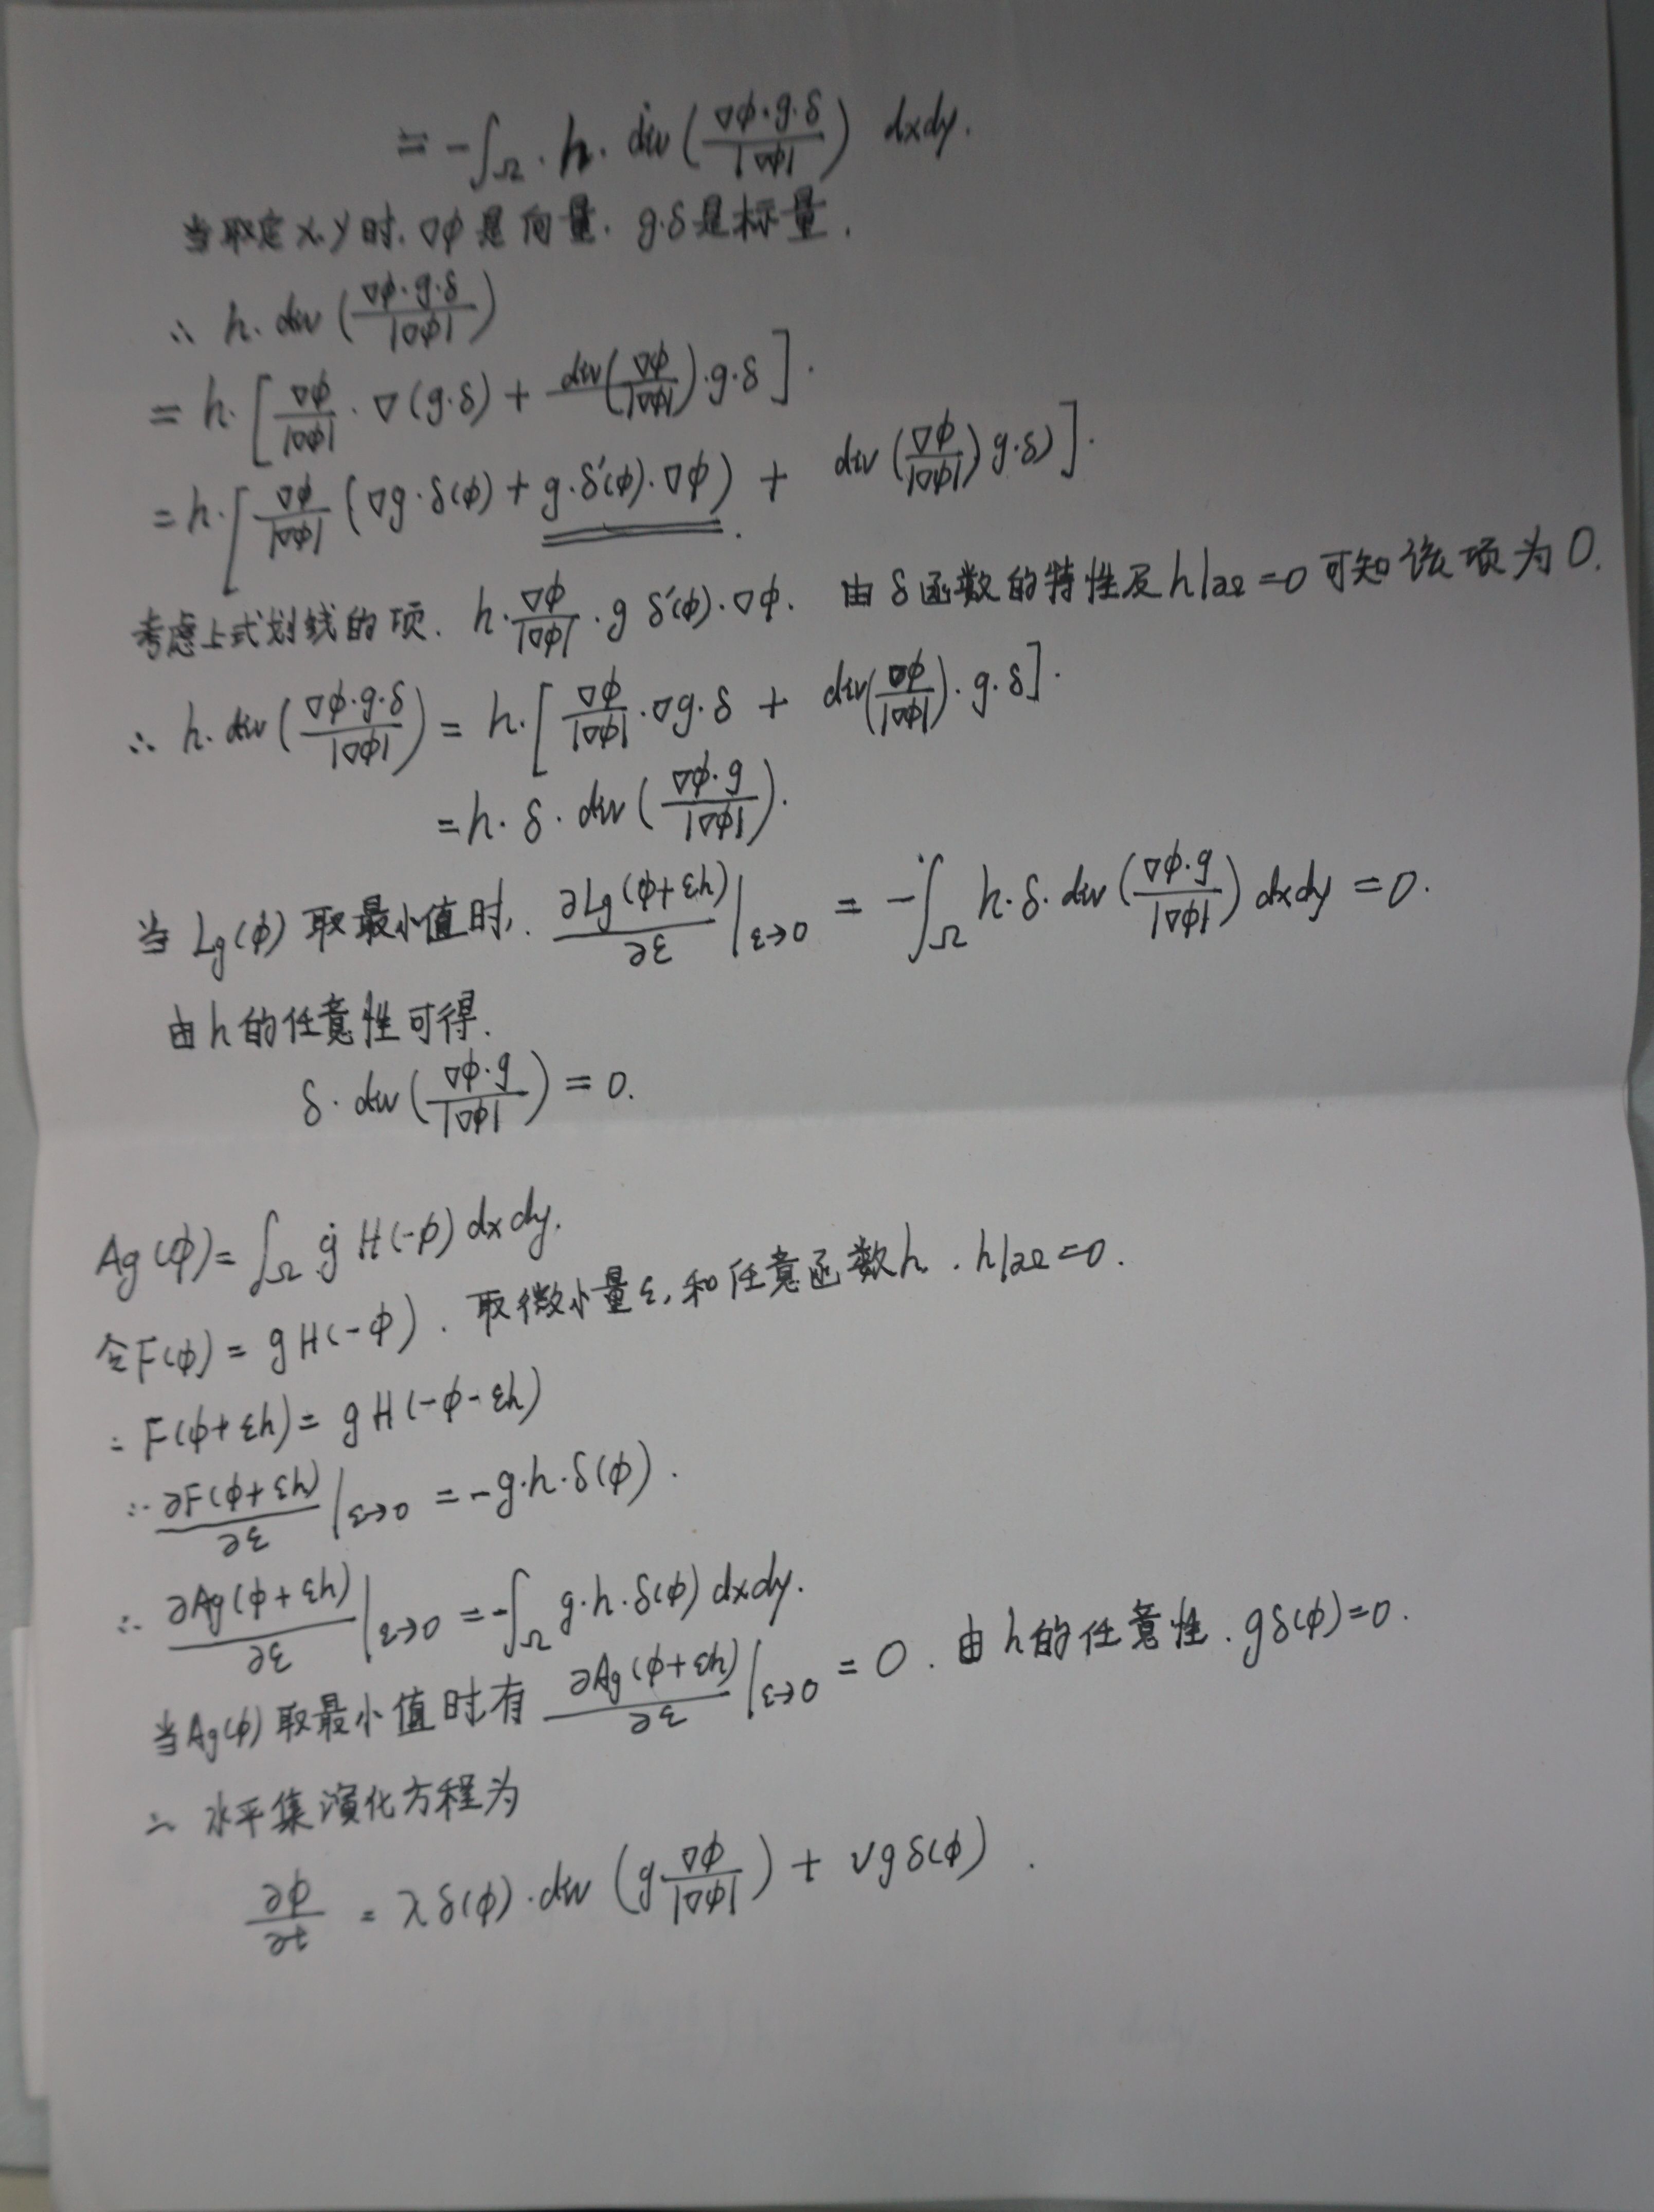 = -∫_Ω · h · div(∇φ·g·δ / |∇φ|) dxdy.
当取定 x, y 时, ∇φ 是向量, g·δ 是标量.
∴ h·div(∇φ·g·δ / |∇φ|)
= h·[∇φ/|∇φ| · ∇(g·δ) + div(∇φ/|∇φ|)·g·δ].
= h·[∇φ/|∇φ| (∇g·δ(φ) + g·δ'(φ)·∇φ) + div(∇φ/|∇φ|) g·δ)].
考虑上式划线的项. h·∇φ/|∇φ| · g δ'(φ)·∇φ. 由 δ 函数的特性及 h|∂Ω=0 可知该项为 0.
∴ h·div(∇φ·g·δ / |∇φ|) = h·[∇φ/|∇φ| ·∇g·δ + div(∇φ/|∇φ|)·g·δ].
= h·δ·div(∇φ·g / |∇φ|).
当 Lg(φ) 取最小值时, ∂Lg(φ+εh)/∂ε |ε→0 = -∫_Ω h·δ·div(∇φ·g / |∇φ|) dxdy = 0.
由 h 的任意性可得.
δ·div(∇φ·g / |∇φ|) = 0.
Ag(φ) = ∫_Ω g H(-φ) dxdy.
令 F(φ) = g H(-φ). 取微小量 ε, 和任意函数 h, h|∂Ω=0.
∴ F(φ+εh) = g H(-φ-εh)
∴ ∂F(φ+εh)/∂ε |ε→0 = -g·h·δ(φ).
∴ ∂Ag(φ+εh)/∂ε |ε→0 = -∫_Ω g·h·δ(φ) dxdy.
当 Ag(φ) 取最小值时有 ∂Ag(φ+εh)/∂ε |ε→0 = 0. 由 h 的任意性. gδ(φ)=0.
∴ 水平集演化方程为
∂φ/∂t = λδ(φ)·div(g ∇φ/|∇φ|) + νgδ(φ).